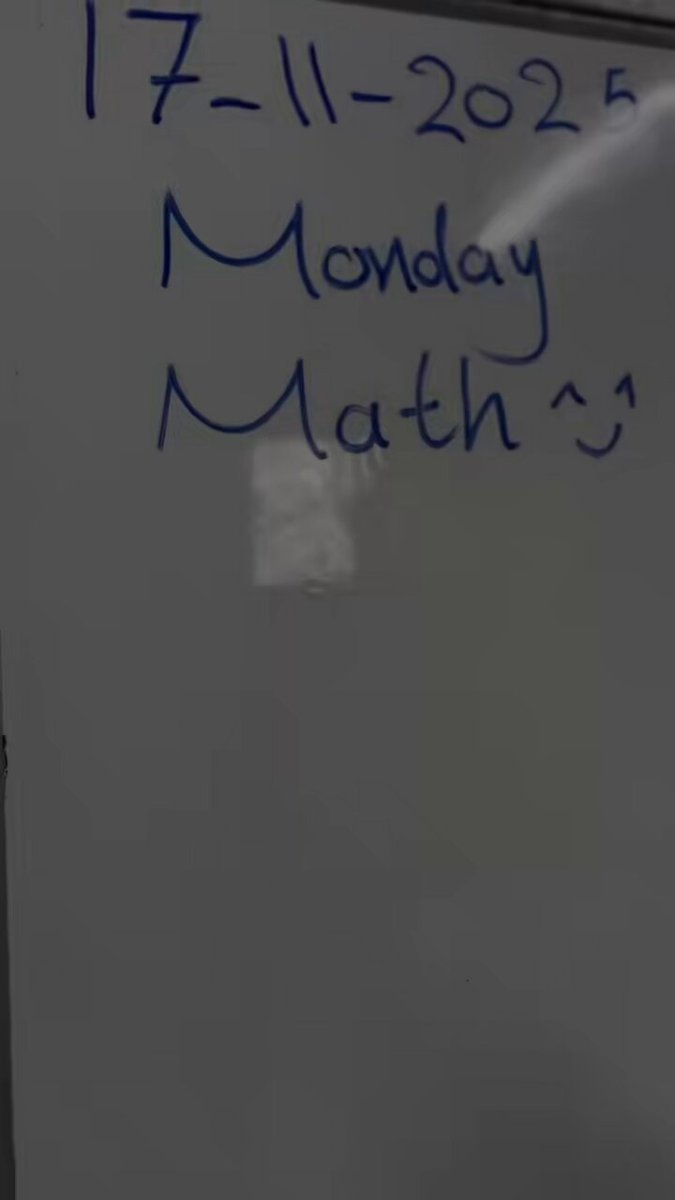 17-11-2025
Monday
Math ^‿^